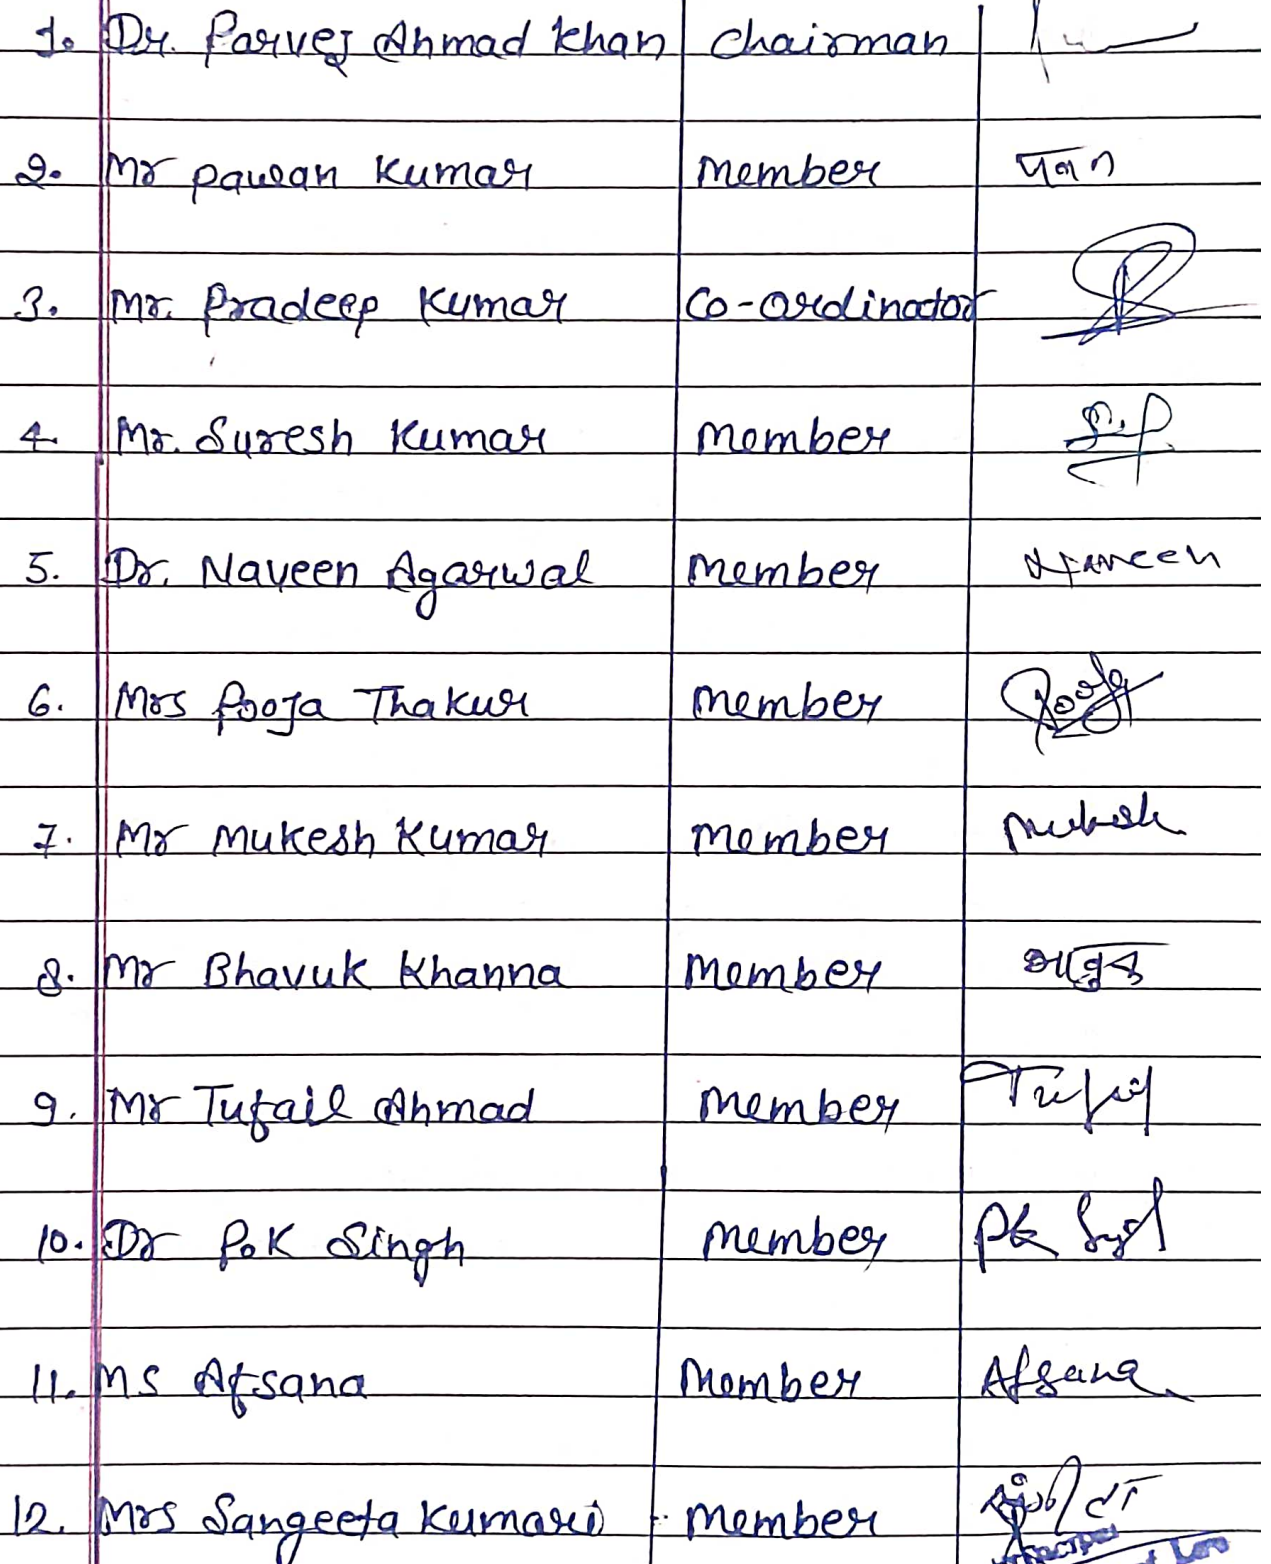 1. Dr. Parvej Ahmad Khan Chairman
2. Mr Pawan Kumar Member पवन
3. Mr. Pradeep Kumar Co-ordinator
4. Mr. Suresh Kumar Member
5. Dr. Naveen Agarwal Member Naveen
6. Mrs Pooja Thakur Member Pooja
7. Mr Mukesh Kumar Member Mukesh
8. Mr Bhavuk Khanna Member भावुक
9. Mr Tufail Ahmad Member Tufail
10. Dr P.K Singh Member PK Singh
11. Ms Afsana Member Afsana
12. Mrs Sangeeta Kumari Member संगीता